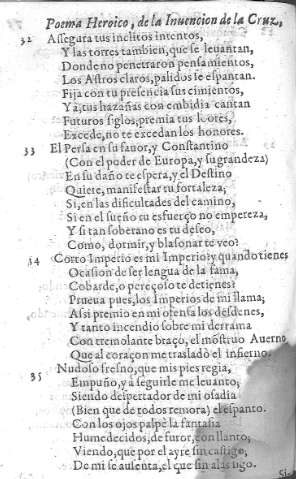 Poema Heroico, de la Inuencion de la Cruz,
32 Assegura tus inclitos intentos,
Y las torres tambien, que se leuantan,
Donde no penetraron pensamientos,
Los Astros claros, palidos se espantan.
Fija con tu presencia sus cimientos,
Y à, tus hazañas con embidia cantan
Futuros siglos, premia tus lores,
Excede, no te excedan los honores.
33 El Persa en su fauor, y Constantino
(Con el poder de Europa, y su grandeza)
En su daño te espera, y el Destino
Quiere, manifestar tu fortaleza;
Si, en las dificultades del camino,
Si en el sueño tu esfuerço no empereza,
Y si tan soberano es tu deseo,
Como, dormir, y blasonar te veo?
34 Corto Imperio es mi Imperio? y quando tienes
Ocasion de ser lengua de la fama,
Cobarde, o pereçoso te detienes?
Prueua pues, los Imperios de mi llama;
Assi premio en mi ofensa los desdenes,
Y tanto incendio sobre mi derrama
Con tremolante braço, el mõstruo Auerno
Que al coraçon me trasladò el infierno.
35 Nudoso fresno, que mis pies regia,
Empuño, y à seguirle me leuanto;
Siendo despertador de mi osadia
(Bien que de todos remora) el espanto.
Con los ojos palpè la fantasia
Humedecidos, de furor, con llanto;
Viendo, que por el ayre sin castigo,
De mi se ausenta, el que sin alas sigo.
Si